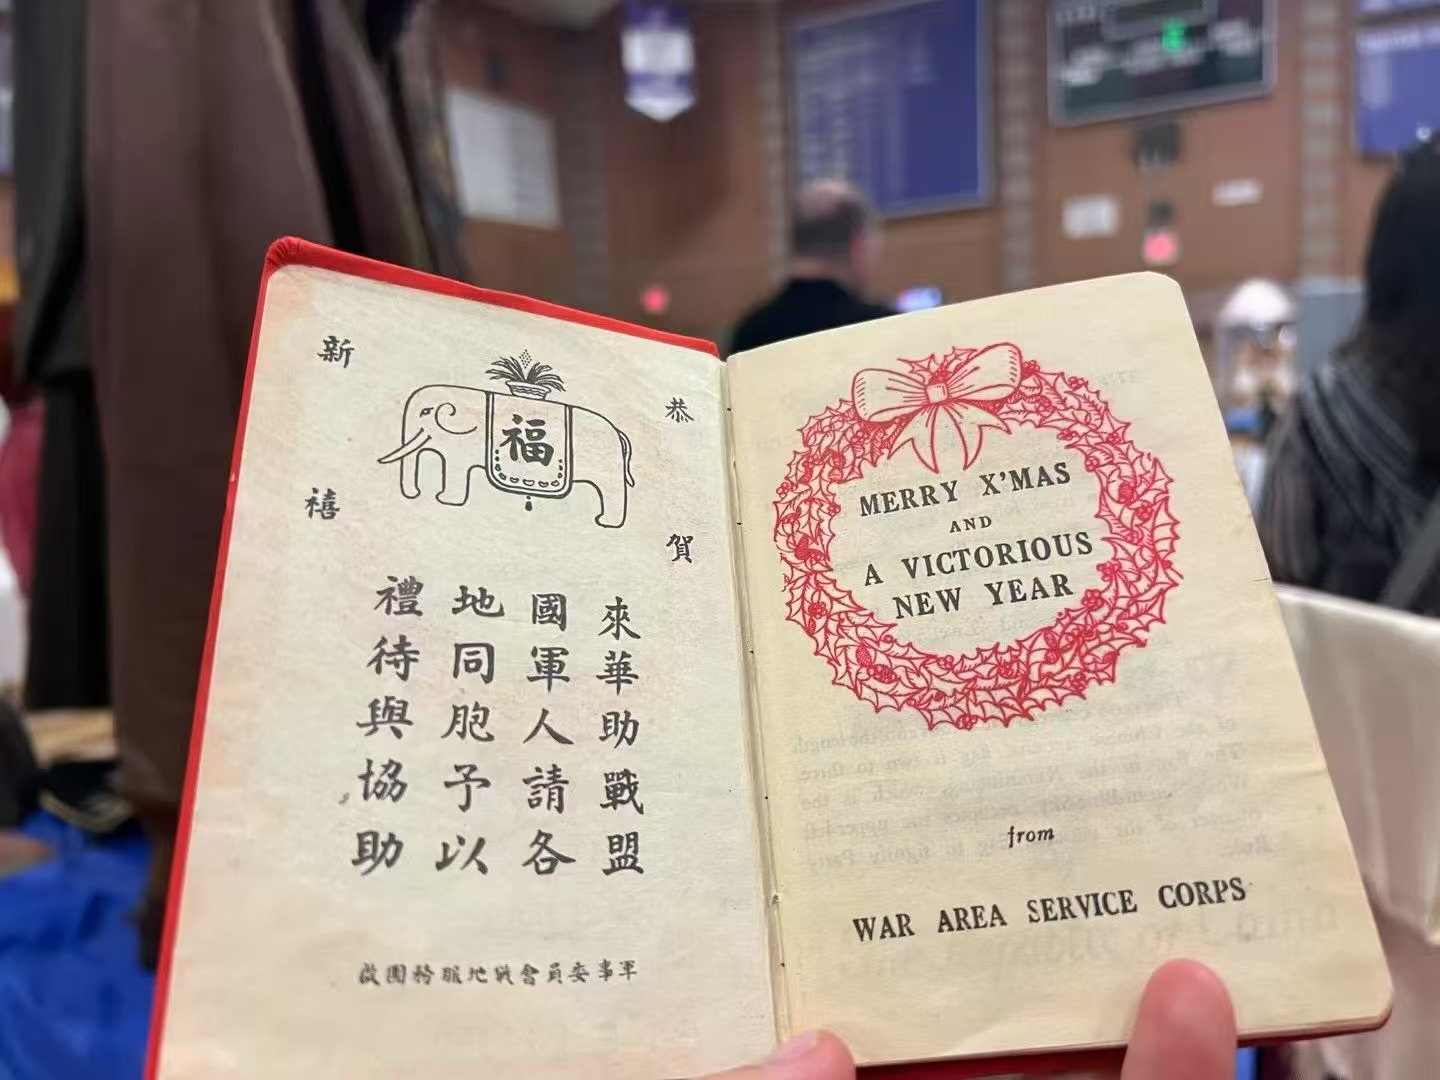 恭賀
新禧
福
來華助戰盟
國軍人請各
地同胞予以
禮待與協助
軍事委員會戰地服務團啟
MERRY X'MAS
AND
A VICTORIOUS
NEW YEAR
from
WAR AREA SERVICE CORPS